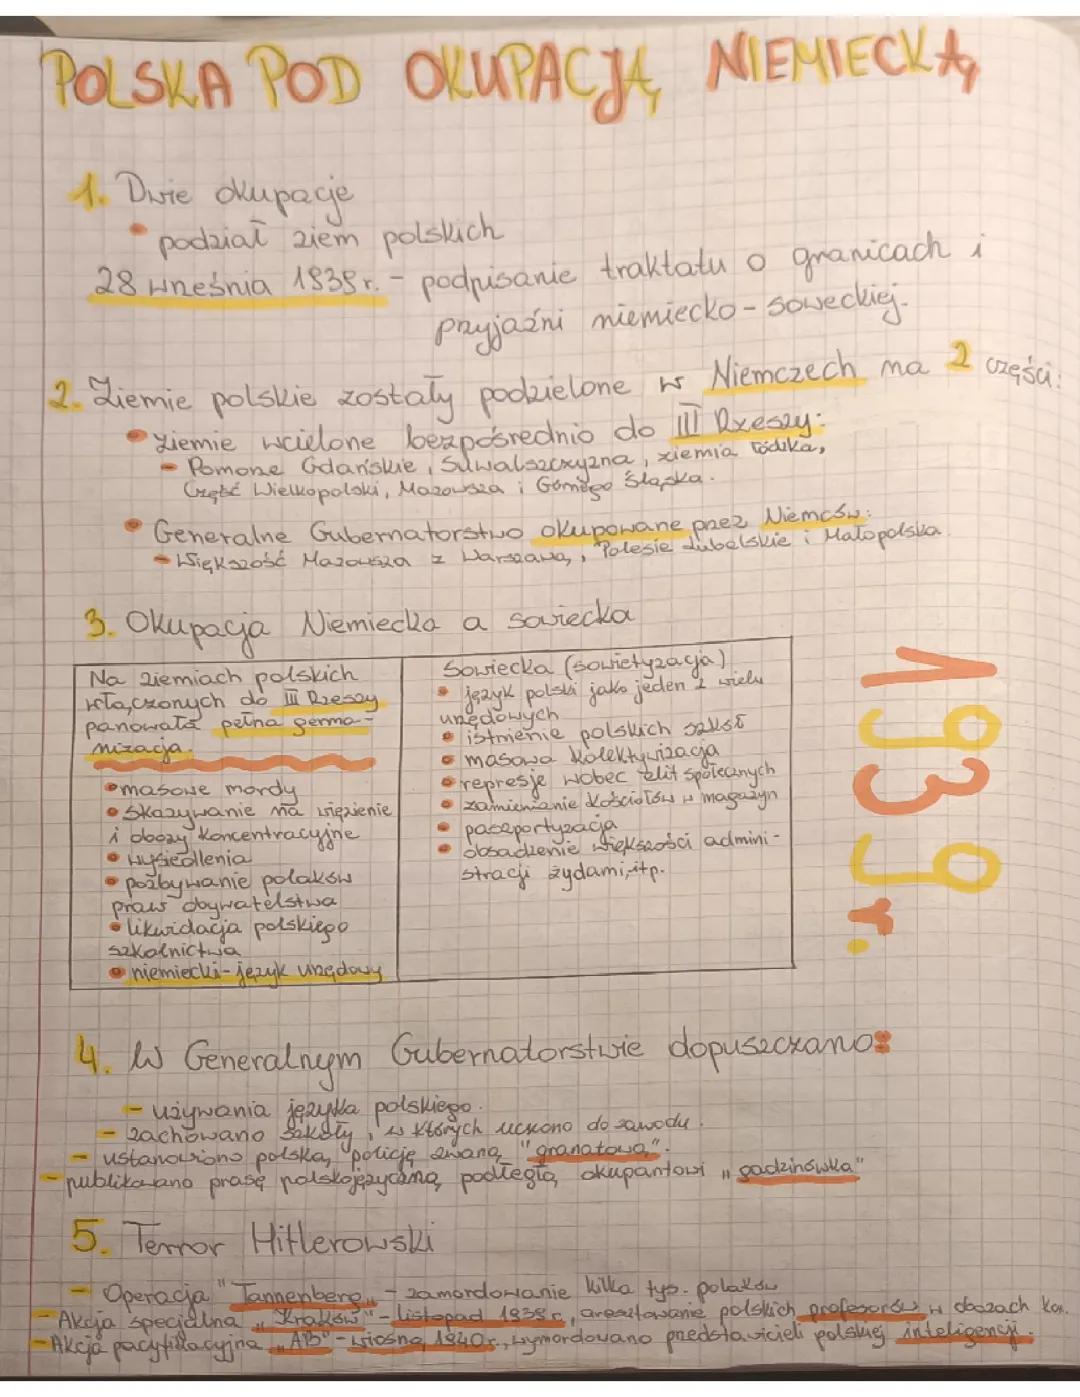 POLSKA POD OKUPACJĄ NIEMIECKĄ
1. Dwie okupacje
• podział ziem polskich
28 września 1939r. - podpisanie traktatu o granicach i
przyjaźni niemiecko-soweckiej.
2. Ziemie polskie zostały podzielone w Niemczech na 2 części:
• ziemie wcielone bezpośrednio do III Rzeszy:
- Pomorze Gdańskie, Suwalszczyzna, ziemia łódzka,
Część Wielkopolski, Mazowsza i Górnego Śląska.
• Generalne Gubernatorstwo okupowane przez Niemców:
- Większość Mazowsza z Warszawą, Polesie Lubelskie i Małopolska
3. Okupacja Niemiecka a sowiecka
Na ziemiach polskich
włączonych do III Rzeszy
panowała pełna germa-
nizacja.
• masowe mordy
• skazywanie na więzienie
i obozy koncentracyjne
• wysiedlenia
• pozbywanie polaków
praw obywatelstwa
• likwidacja polskiego
szkolnictwa
• niemiecki-język urzędowy
Sowiecka (sowietyzacja)
• język polski jako jeden z wielu
urzędowych
• istnienie polskich szkół
• masowa kolektywizacja
• represje wobec elit społecznych
• zamienianie kościołów w magazyn
• paszportyzacja
• obsadzenie większości admini-
stracji żydami, itp.
1939r.
4. W Generalnym Gubernatorstwie dopuszczano:
- używania języka polskiego.
- zachowano szkoły, w których uczono do zawodu.
- ustanowiono polską policję zwaną "granatową".
- publikowano prasę polskojęzyczną podległą okupantowi „gadzinówka"
5. Terror Hitlerowski
- Operacja "Tannenberg„ - zamordowanie kilka tys. polaków
- Akcja specjalna „Kraków" - listopad 1939r., aresztowanie polskich profesorów w obozach kon.
- Akcja pacyfikacyjna „AB" - wiosna, 1940r., wymordowano przedstawicieli polskiej inteligencji.